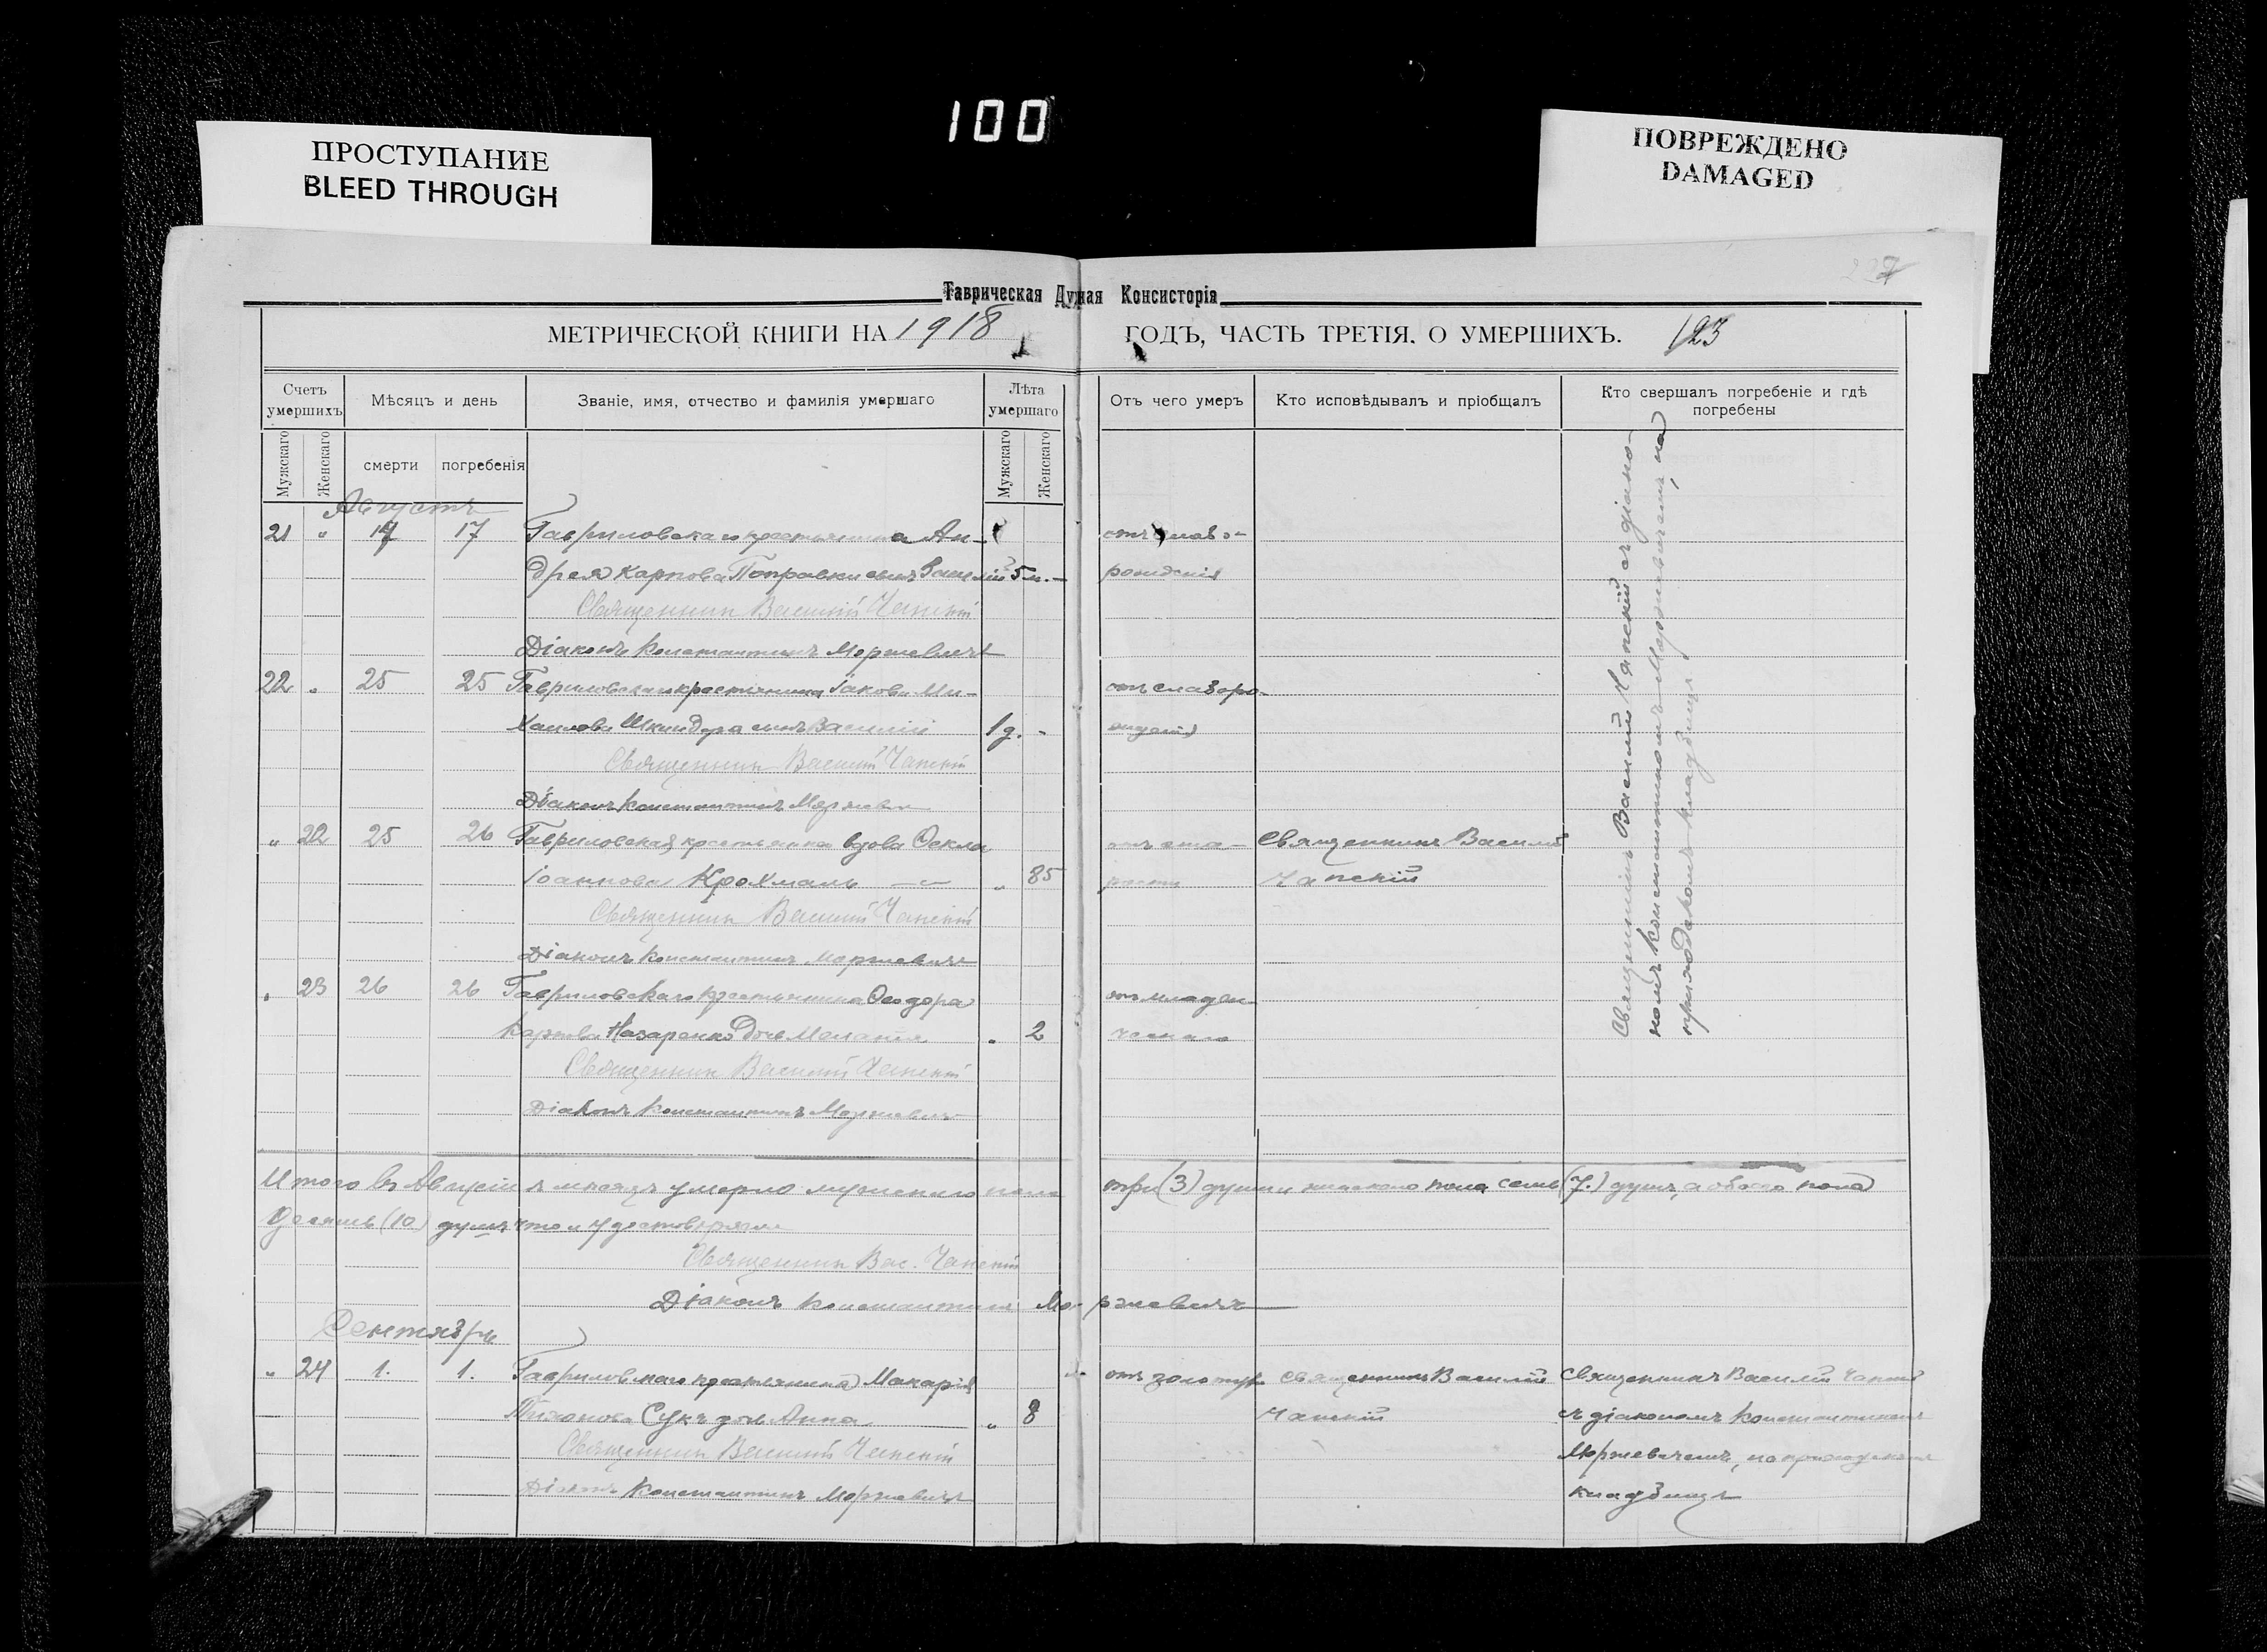 100
ПРОСТУПАНИЕ
BLEED THROUGH
ПОВРЕЖДЕНО
DAMAGED
Таврическая Дух ная Консисторія
МЕТРИЧЕСКОЙ КНИГИ НА 1918 ГОДЪ, ЧАСТЬ ТРЕТІЯ. О УМЕРШИХЪ. 123
Счетъ умершихъ
Мѣсяцъ и день
Званіе, имя, отчество и фамилія умершаго
Лѣта умершаго
Отъ чего умеръ
Кто исповѣдывалъ и пріобщалъ
Кто свершалъ погребеніе и гдѣ погребены
Мужскаго
Женскаго
смерти
погребенія
Мужскаго
Женскаго
Августъ
21 " 17 17 Гавриловскаго крестьянина Ан- отъ слабо-
дрея Карпова Поправки сынъ Василій 5 м. - рожденія
Священникъ Василій Чапскій
Діаконъ Константинъ Моржевичъ
22 " 25 25 Гавриловскаго крестьянина Іакова Ми- отъ слаборо-
хаилова Шкиндера сынъ Василій 1 д. - жденія
Священникъ Василій Чапскій
Діаконъ Константинъ Моржевичъ
" 22 25 26 Гавриловская крестьянка вдова Ѳекла отъ ста- Священникъ Василій
Іоаннова Крохмаль " 85 рости Чапскій
Священникъ Василій Чапскій
Діаконъ Константинъ Моржевичъ
" 23 26 26 Гавриловскаго крестьянина Ѳеодора отъ младен-
Карпова Назаренко дочь Меланія " 2 ческаго
Священникъ Василій Чапскій
Діаконъ Константинъ Моржевичъ
Священникъ Василій Чапскій съ діако-
номъ Константиномъ Моржевичемъ, на
приходскомъ кладбищѣ
Итого въ Августѣ мѣсяцѣ умерло мужскаго пола три (3) души и женскаго пола семь (7.) душъ, а обоего пола
десять (10) душъ что и удостовѣряемъ
Священникъ Вас. Чапскій
Діаконъ Константинъ Моржевичъ
Сентябрь
" 24 1. 1. Гавриловскаго крестьянина Макарія отъ золотухи Священникъ Василій Священникъ Василій Чапскій
Тихонова Сукъ дочь Анна " 8 Чапскій съ діакономъ Константиномъ
Священникъ Василій Чапскій Моржевичемъ, на приходскомъ
Діаконъ Константинъ Моржевичъ кладбищѣ